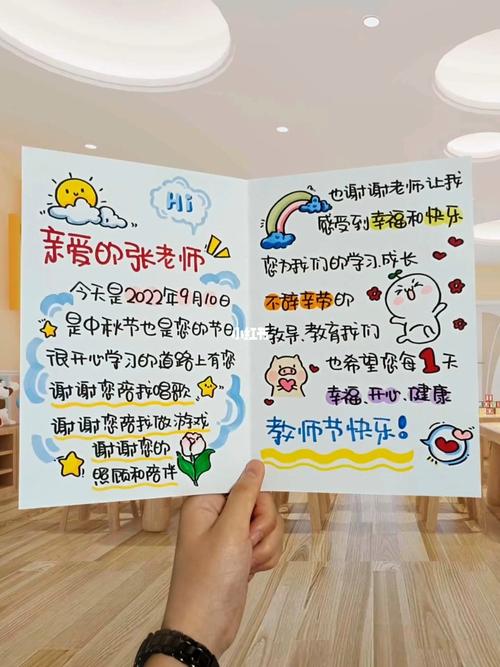 Hi
亲爱的张老师
今天是2022年9月10日
是中秋节也是您的节日
很开心学习的道路上有您
谢谢您陪我唱歌
谢谢您陪我做游戏
谢谢您的
照顾和陪伴
也谢谢老师让我
感受到幸福和快乐
您为我们的学习、成长
不辞辛劳的
教导、教育我们
也希望您每1天
幸福、开心、健康
教师节快乐!
小红书